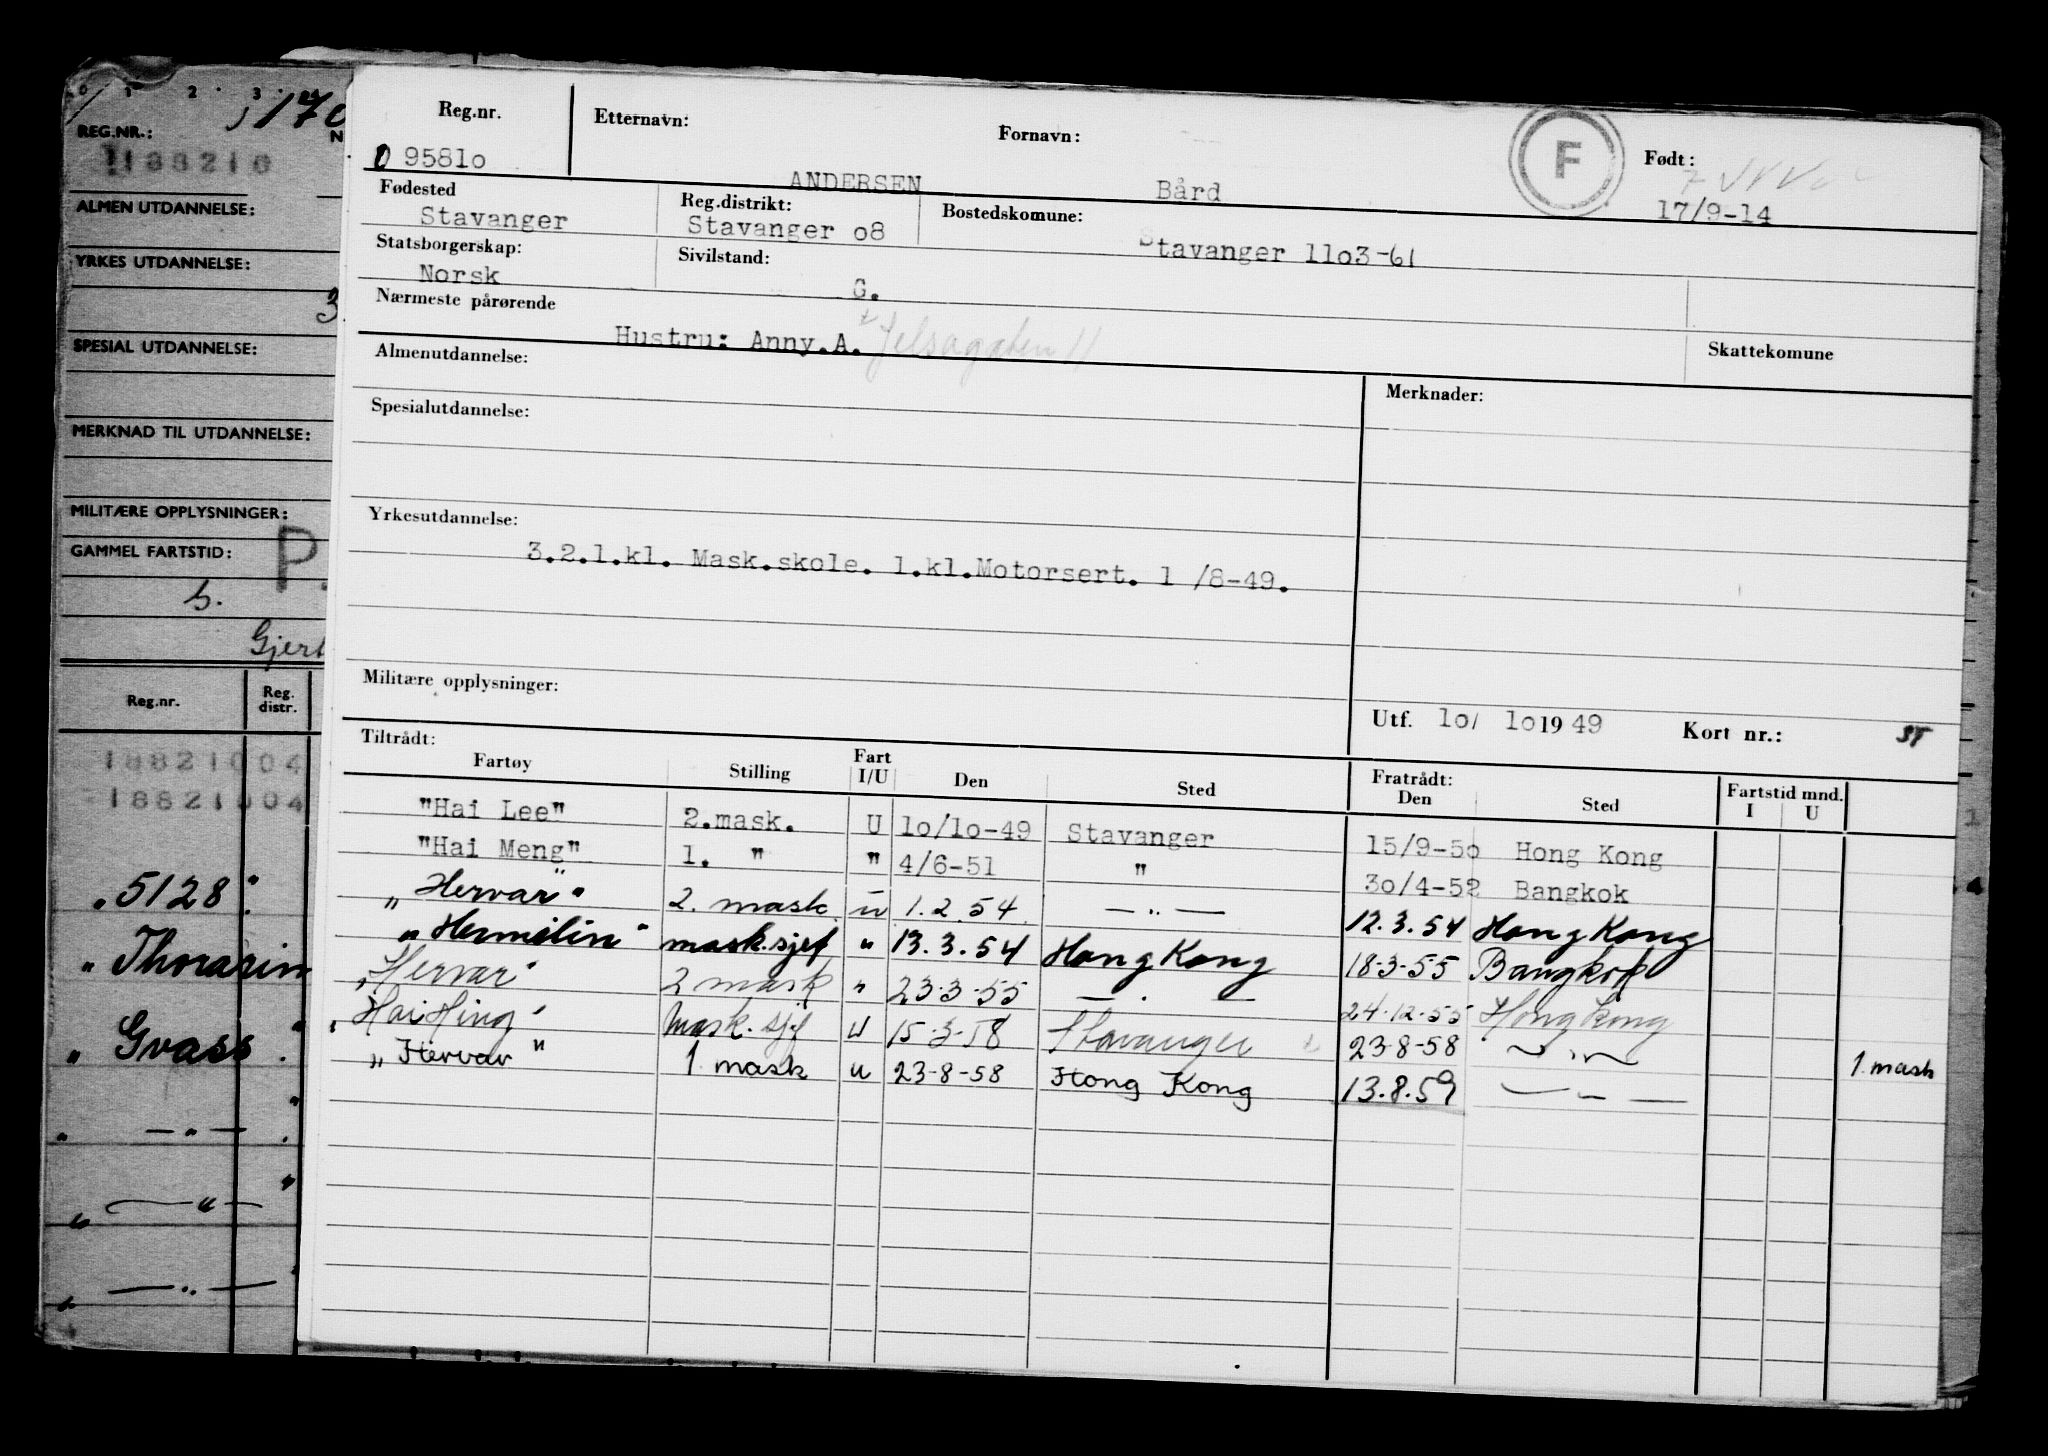 0 1 2 3
170
REG.NR.:
188210
ALMEN UTDANNELSE:
YRKES UTDANNELSE:
3.
SPESIAL UTDANNELSE:
MERKNAD TIL UTDANNELSE:
MILITÆRE OPPLYSNINGER:
GAMMEL FARTSTID: P.
Reg.nr. Reg. distr.
18821004
18821004
"5128"
"Thorasin
"Grass"
" — " — "
" — " — "
" — " — "
Reg.nr. Etternavn: Fornavn: F Født:
0 9581o ANDERSEN Bård 17/9-14
Fødested Reg.distrikt: Bostedskomune:
Stavanger Stavanger o8 Stavanger 11o3-61
Statsborgerskap: Sivilstand:
Norsk G.
Nærmeste pårørende
Hustru: Anny.A. Jelsagaten 11
Skattekomune
Almenutdannelse:
Merknader:
Spesialutdannelse:
Yrkesutdannelse:
3.2.1.kl. Mask.skole. 1.kl.Motorsert. 1 /8-49.
Militære opplysninger:
Utf. 1o/ 1o 19 49 Kort nr.:
Tiltrådt: Fratrådt:
Fartøy Stilling Fart I/U Den Sted Den Sted Fartstid mnd. I U
"Hai Lee" 2.mask. U 1o/1o-49 Stavanger 15/9-5o Hong Kong
"Hai Meng" 1. " " 4/6-51 " 3o/4-52 Bangkok
"Hervar" 2. mask u 1.2.54. — " — 12.3.54 Hong Kong
"Hermelin" mask.sjef " 13.3.54 Hong Kong 18-3-55 Bangkok
"Hervar" 2 mask " 23-3-55 — " — 24-12-55 Hong Kong
"Hai Hing" Mask.sjef U 15-3-58 Stavanger 23-8-58 — " — 1. mask
"Hervar" 1 mask u 23-8-58 Hong Kong 13.8.59 — " —